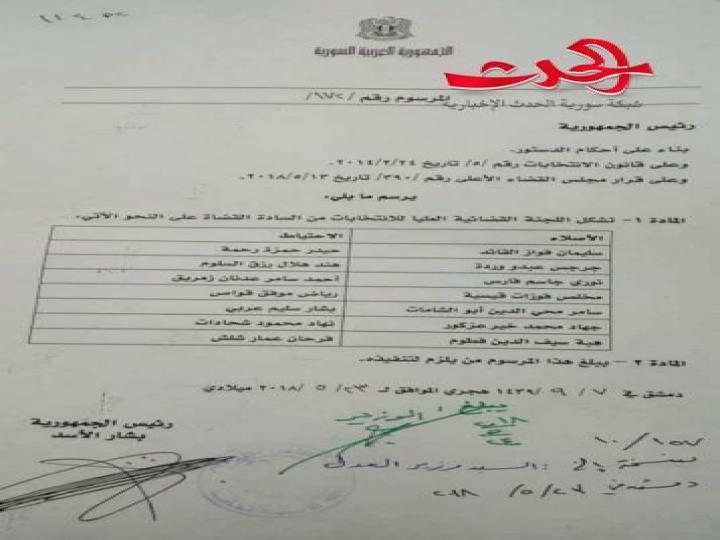 الجمهورية العربية السورية
الحدث
شبكة سورية الحدث الإخبارية
المرسوم رقم /١٧٢/
رئيس الجمهورية
بناء على أحكام الدستور.
وعلى قانون الانتخابات رقم /٥/ تاريخ ٢٠١٤/٣/٢٤.
وعلى قرار مجلس القضاء الأعلى رقم /٣٩٠/ تاريخ ٢٠١٨/٥/١٣.
يرسم ما يلي:
المادة ١- تشكل اللجنة القضائية العليا للانتخابات من السادة القضاة على النحو الآتي:
الأصلاء الاحتياط
سليمان فواز القائد حيدر حمزة رحمة
جرجس عبدو وردة هند هلال رزق السلوم
نوري جاسم فارس أحمد سامر عدنان زمريق
مخلص فوزات قيسية رياض موفق قواص
سامر محي الدين أبو الشامات بشار سليم عربي
جهاد محمد خير عزكور نهاد محمود شحادات
هبة سيف الدين فطوم فرحان عمار شلش
المادة ٢- يبلغ هذا المرسوم من يلزم لتنفيذه.
دمشق في ٧ / ٩ /١٤٣٩ هجري الموافق لـ ٢٣/ ٥ /٢٠١٨ ميلادي
رئيس الجمهورية
بشار الأسد
يبلغ: الوزير
١٠/١٥٧
نسخة إلى: السيد وزير العدل
دمشق في ٢٠١٨/٥/٢٣